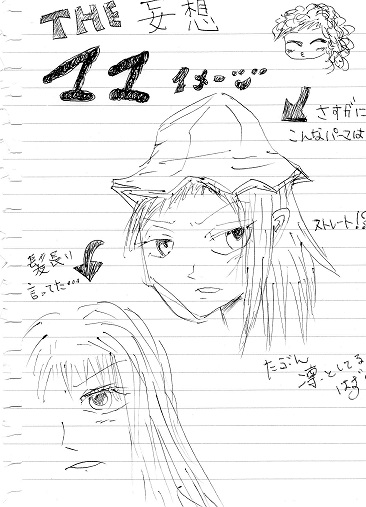 THE 妄想
11 イメージ
さすがに
こんなパーマは
ストレート!?
髪長い
言ってた…
たぶん
凛としてる
はず